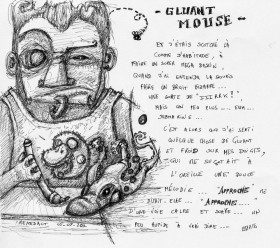 - GLUANT
MOUSE -
ET J'ÉTAIS ENCORE LÀ
COMME D'HABITUDE, À
FAIRE UN SUPER MEGA DESSIN,
QUAND J'AI ENTENDU LA SOURIS
FAIRE UN BRUIT BIZARRE...
UNE SORTE DE
MAIS UN PEU PLUS...
C'EST ALORS QUE J'AI SENTI
QUELQUE CHOSE DE GLUANT
ET FROID SUR MES DOIGTS,
QUI ME
L'OREILLE UNE DOUCE
MÉLODIE... "APPROCHE" ME
DISAIT-ELLE "APPROCHE..."
D'UNE VOIX CALME ET SUAVE... UN
PEU RAUQUE À VRAI DIRE...